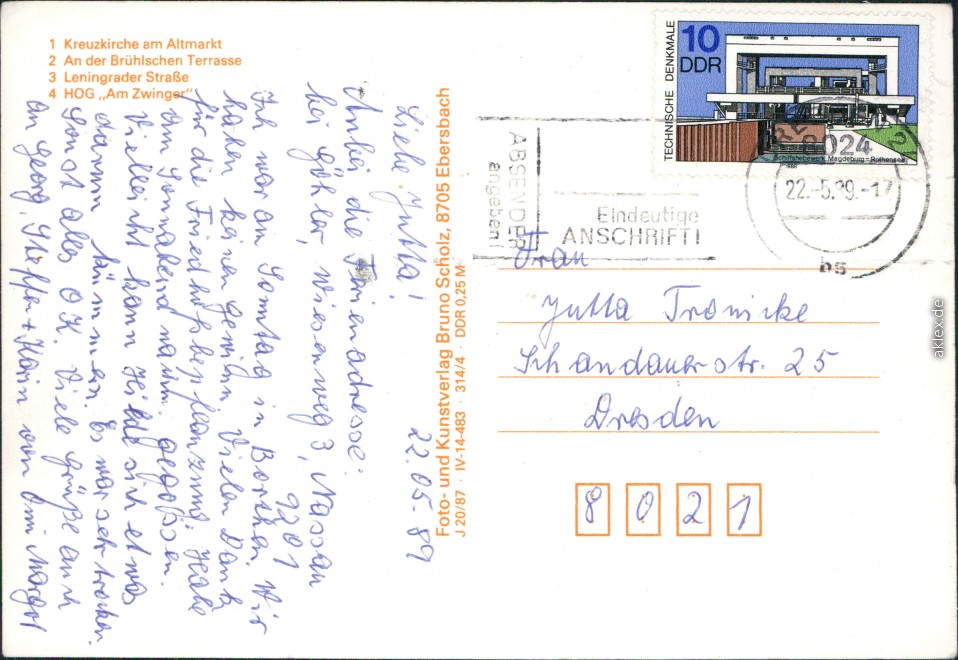 1 Kreuzkirche am Altmarkt
2 An der Brühlschen Terrasse
3 Leningrader Straße
4 HOG „Am Zwinger"
22.05.89
Liebe Jutta!
Anbei die Ferienadresse:
bei Göhler, Wiesenweg 3, Nassau
9201
Ich war am Sonntag in Borthen. Wir
haben keinen Gewinn. Vielen Dank
für die Friedhofsbepflanzung. Habe
am Sonnabend nachm. gegossen.
Vielleicht kann Hilde sich etwas
darum kümmern. Es war sehr trocken.
Sonst alles OK. Viele Grüße auch
an Georg, Steffen + Karin von Omi Margot
Foto- und Kunstverlag Bruno Scholz, 8705 Ebersbach
J 20/87 · IV-14-483 · 314/4 · DDR 0,25 M
TECHNISCHE DENKMALE
10
DDR
Schiffshebewerk Magdeburg-Rothensee
8024
22.-5.89.-17
bs
ABSENDER
angeben!
Eindeutige
ANSCHRIFT!
Frau
Jutta Tronicke
Schandauerstr. 25
Dresden
8 0 2 1
aklex.de